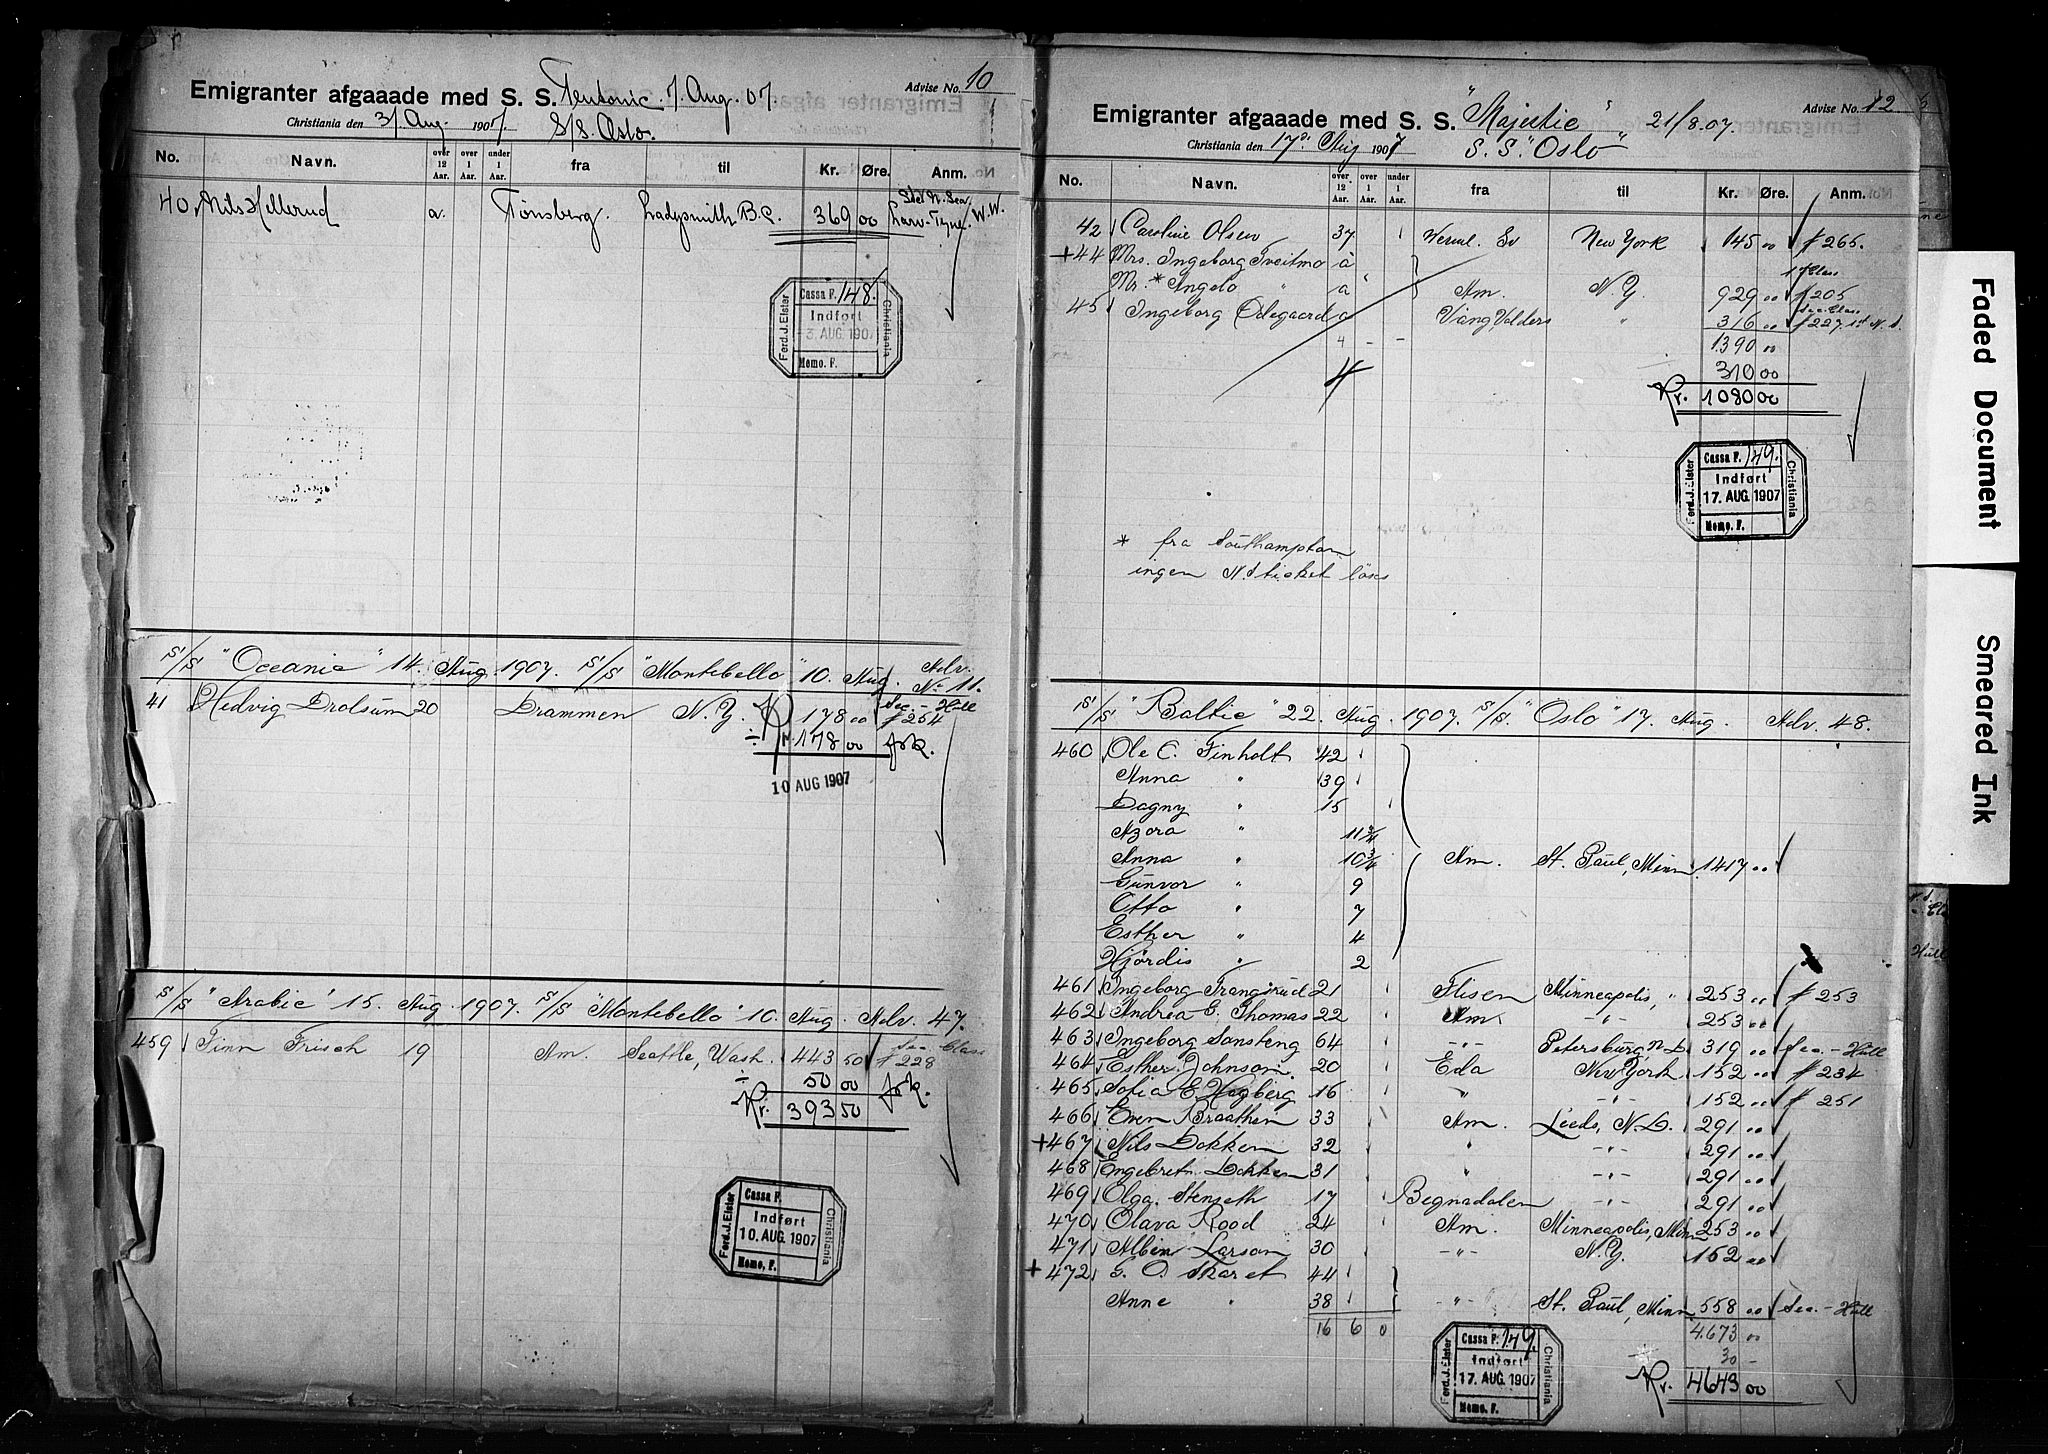 Advise No. 10
Emigranter afgaaade med S. S. Teutonic 7. Aug. 07
Christiania den 3/ Aug. 1907 S/S. Oslo.
No. Navn. over 12 Aar. over 1 Aar. under 1 Aar. fra til Kr. Øre. Anm.
40 Nils Hellerud a. Tønsberg. Ladysmith B.C. 369 00 Larv-Tyne. W.W.
Ferd. J. Elster Christiania
Cassa F. 148.
Indført
3 AUG. 1907
Memo. F.
S/S "Oceanic" 14. Aug. 1907. S/S "Montebello" 10. Aug. Adv. No 11.
41 Hedvig Drolsum 20 Drammen N.Y. 178 00 Sec. - Hull # 254
÷ Kr. 178 00
10 AUG 1907
S/S "Arabic" 15. Aug. 1907. S/S "Montebello" 10. Aug. Adv. 47.
459 Finn Frisch 19 Am. Seattle, Wash. 443 50 Sec. Class # 228
÷ 50 00
Kr. 393 50
Ferd. J. Elster Christiania
Cassa F.
Indført
10. AUG. 1907
Memo. F.
Advise No. 12
Emigranter afgaaade med S. S. "Majestic" 21/8.07
Christiania den 17d. Aug 1907 S. S. "Oslo"
No. Navn. over 12 Aar. over 1 Aar. under 1 Aar. fra til Kr. Øre. Anm.
42 Caroline Olsen 37 Werml. Sv New York 145 00 # 265.
+44 Mrs. Ingeborg Tveitmo a
Mr. * Angelo " a " Am. N.Y. 929 00 1 Class # 205
45 Ingeborg Ødegaard a Vang, Valders " 316 00 Sec. Class # 227. 1st N.S.
4 - - 1390 00
4 310 00
Kr. 1080 00
Ferd. J. Elster Christiania
Cassa F. 149.
Indført
17. AUG. 1907
Memo. F.
* fra Southampton
ingen N.S ticket løses
S/S "Baltic" 22. Aug. 1907. S/S. "Oslo" 17. Aug. Adv. 48.
460 Ole C. Finholt 42
Anna " 39
Dagny " 15
Azora " 11 3/4
Anna " 10 3/4 Am. St. Paul, Minn. 1417 00
Gunvor " 9
Otto " 7
Esther " 4
Hjørdis " 2
461 Ingeborg Trangsrud 21 Flisen Minneapolis, " 253 00 # 253
462 Andrea G. Thomas 22 Am. -"- 253 00
463 Ingeborg Sonsteng 64 -"- Petersburg, N.D. 319 00 Sec. - Hull
464 Esther Johnson. 20 Eda New York 152 00 # 234
465 Sofia E. Hogberg 16 " -"- 152 00 # 251
466 Even Braathen 33 Am. Leeds, N.D. 291 00
+467 Nils Dokken 32 " -"- 291 00
468 Engebret Dokken 31 " -"- 291 00
469 Olga Stenseth 17 Begnadalen -"- 291 00
470 Olava Rood 24 Am. Minneapolis, Minn 253 00
471 Albin Larson 30 -"- N.Y. 152 00
+472 G. O. Skaret 44
Anne " 38 -"- St. Paul, Minn. 558 00 Sec. - Hull
16 6 0 4673 00
30 -
Kr. 4643 00
Ferd. J. Elster Christiania
Cassa F. 149.
Indført
17. AUG. 1907
Memo. F.
Faded Document
Smeared Ink